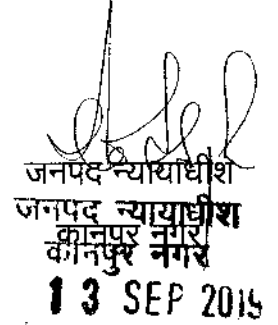 जनपद न्यायाधीश
जनपद न्यायाधीश
कानपुर नगर
कानपुर नगर
13 SEP 2019